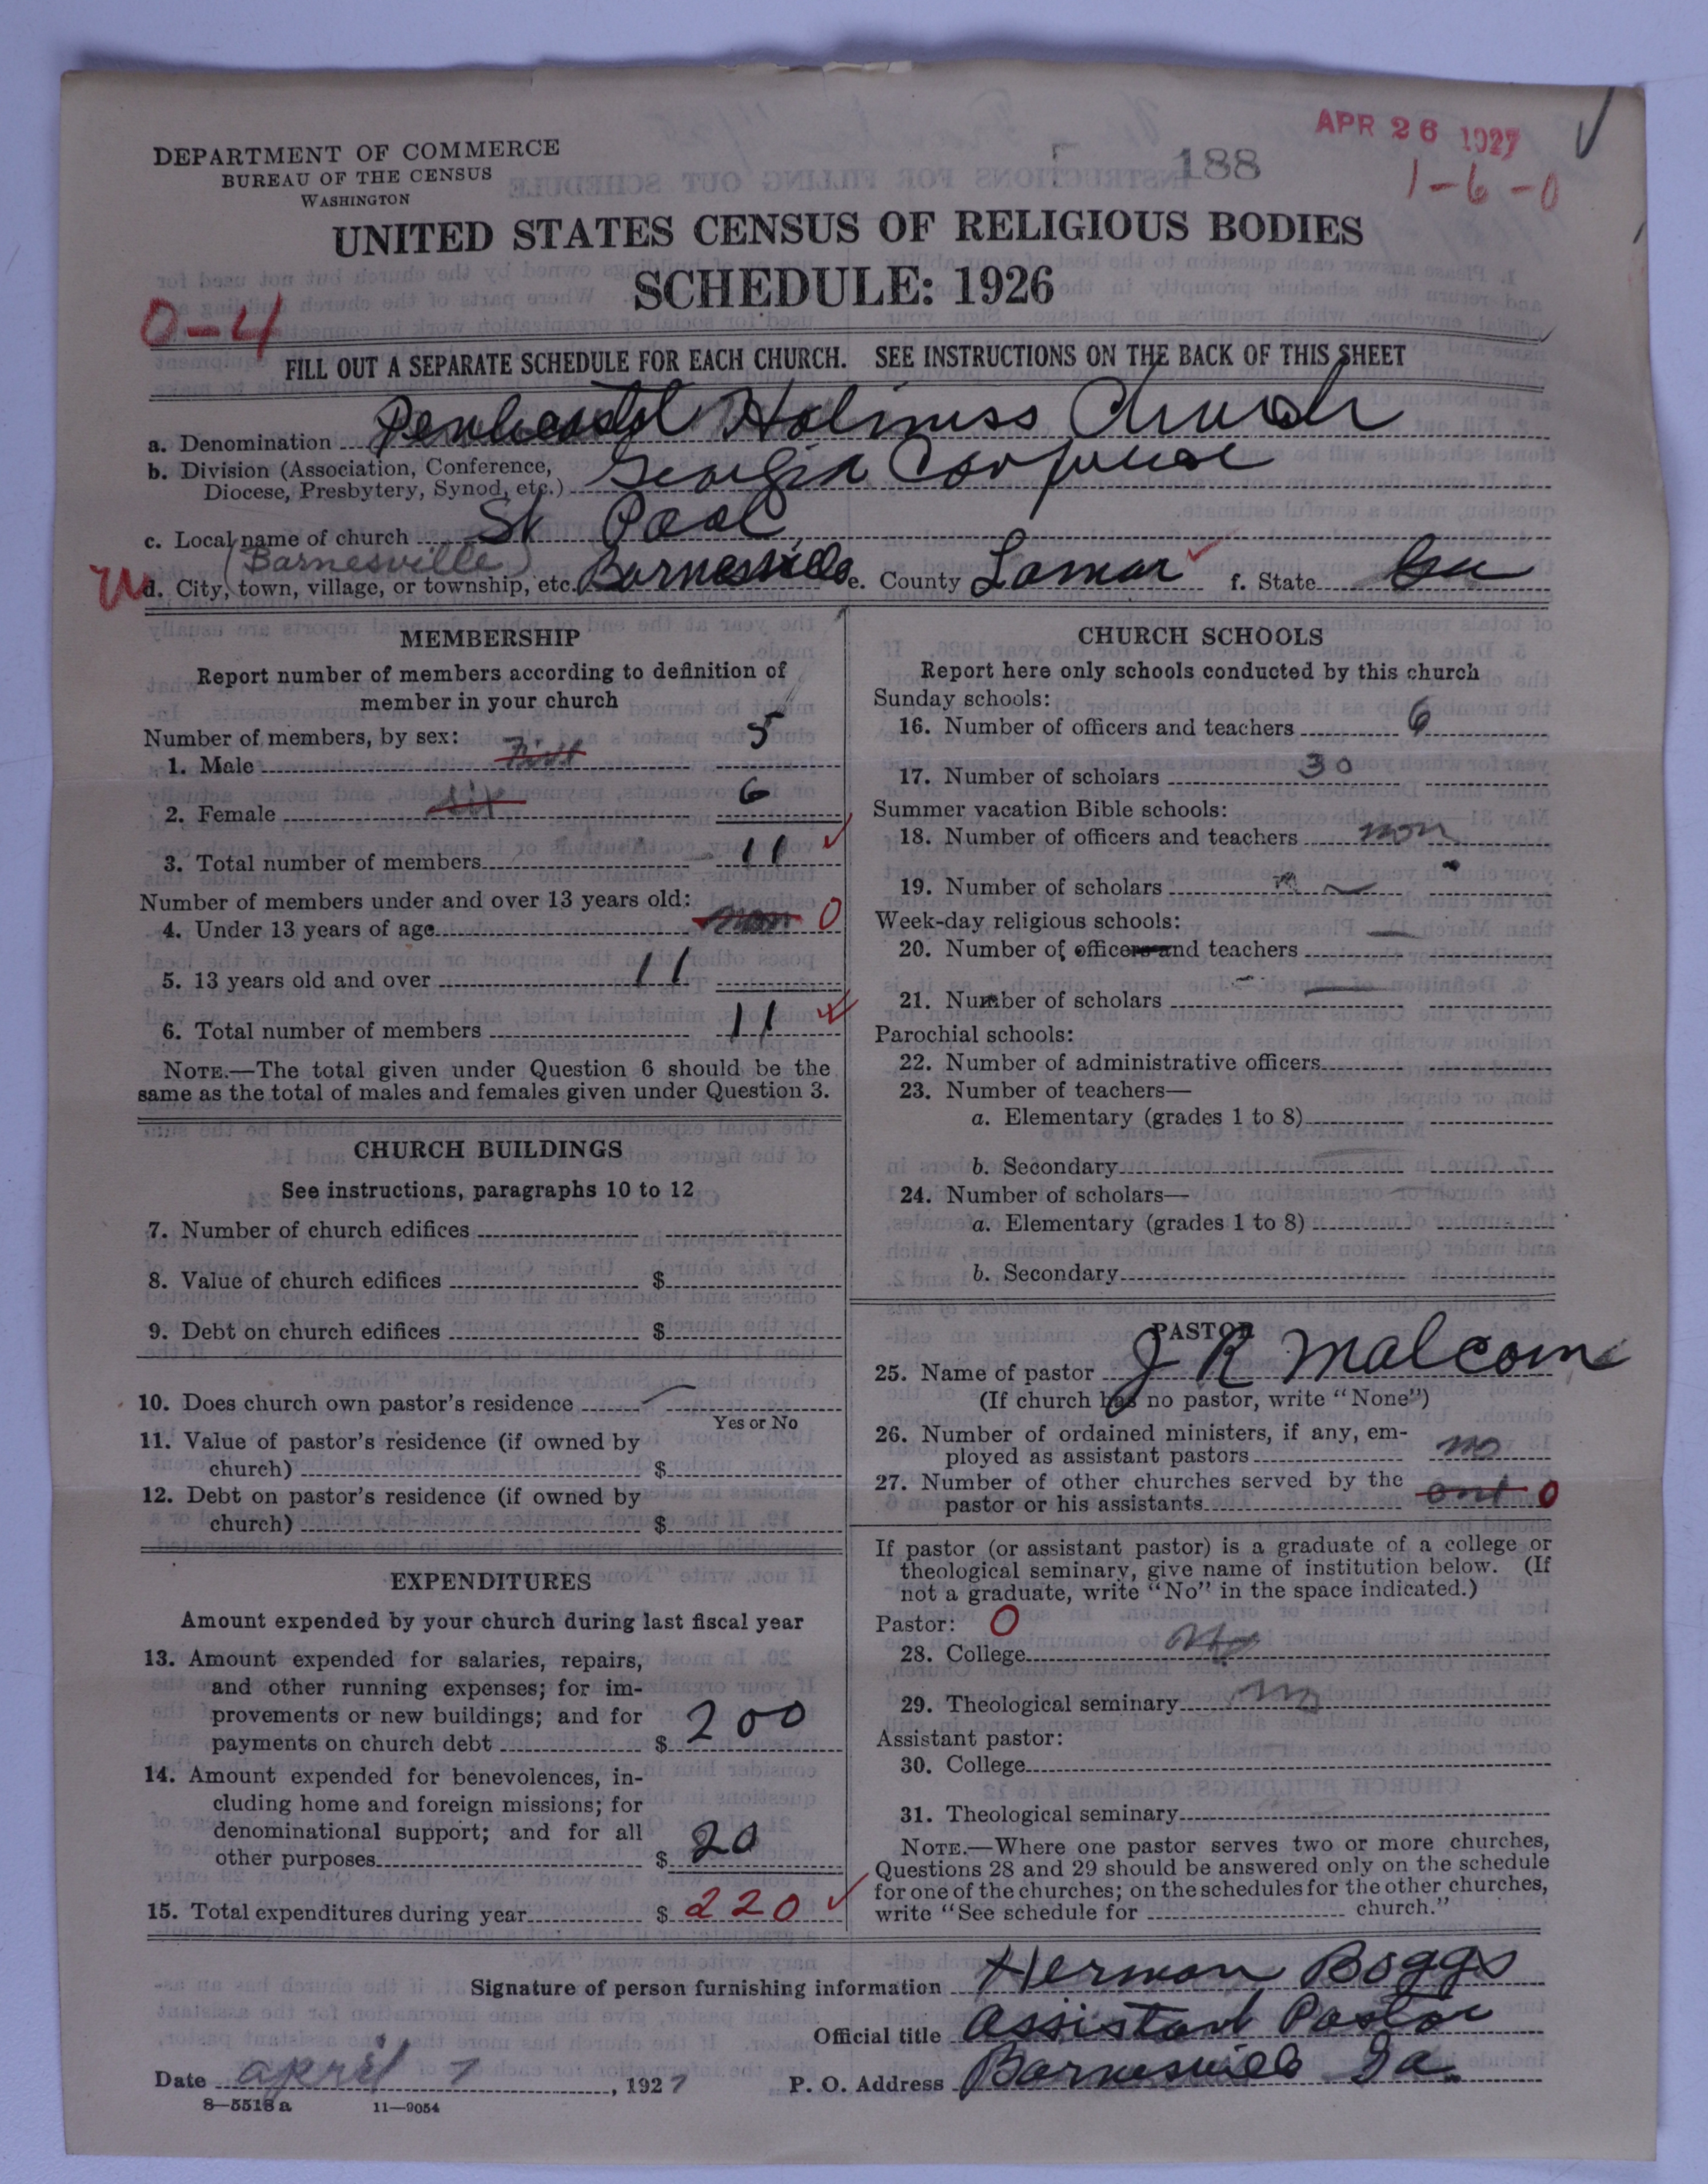 APR 26 1927
188
1-6-0
DEPARTMENT OF COMMERCE
BUREAU OF THE CENSUS
WASHINGTON
UNITED STATES CENSUS OF RELIGIOUS BODIES
SCHEDULE: 1926
0-4
FILL OUT A SEPARATE SCHEDULE FOR EACH CHURCH. SEE INSTRUCTIONS ON THE BACK OF THIS SHEET
a. Denomination Penticostal Holiness Church
b. Division (Association, Conference,
Diocese, Presbytery, Synod, etc.) Georgia
c. Local name of church St Paal
(Barnesville)
d. City, town, village, or township, etc. Barnesville e. County Lamar f. State Ga
MEMBERSHIP
Report number of members according to definition of
member in your church
Number of members, by sex:
1. Male 5
2. Female six 6
3. Total number of members 11
Number of members under and over 13 years old:
4. Under 13 years of age non 0
5. 13 years old and over 11
6. Total number of members 11
NOTE.—The total given under Question 6 should be the
same as the total of males and females given under Question 3.
CHURCH BUILDINGS
See instructions, paragraphs 10 to 12
7. Number of church edifices
8. Value of church edifices $
9. Debt on church edifices $
10. Does church own pastor's residence
Yes or No
11. Value of pastor's residence (if owned by
church) $
12. Debt on pastor's residence (if owned by
church) $
EXPENDITURES
Amount expended by your church during last fiscal year
13. Amount expended for salaries, repairs,
and other running expenses; for im-
provements or new buildings; and for
payments on church debt $ 200
14. Amount expended for benevolences, in-
cluding home and foreign missions; for
denominational support; and for all
other purposes $ 20
15. Total expenditures during year $ 220
CHURCH SCHOOLS
Report here only schools conducted by this church
Sunday schools:
16. Number of officers and teachers 6
17. Number of scholars 30
Summer vacation Bible schools:
18. Number of officers and teachers non
19. Number of scholars
Week-day religious schools:
20. Number of officers and teachers
21. Number of scholars
Parochial schools:
22. Number of administrative officers
23. Number of teachers—
a. Elementary (grades 1 to 8)
b. Secondary
24. Number of scholars—
a. Elementary (grades 1 to 8)
b. Secondary
PASTOR
25. Name of pastor J R Malcom
(If church has no pastor, write "None")
26. Number of ordained ministers, if any, em-
ployed as assistant pastors no
27. Number of other churches served by the
pastor or his assistants one 0
If pastor (or assistant pastor) is a graduate of a college or
theological seminary, give name of institution below. (If
not a graduate, write "No" in the space indicated.)
Pastor: 0
28. College No
29. Theological seminary no
Assistant pastor:
30. College
31. Theological seminary
NOTE.—Where one pastor serves two or more churches,
Questions 28 and 29 should be answered only on the schedule
for one of the churches; on the schedules for the other churches,
write "See schedule for church."
Signature of person furnishing information Herman Boggs
Official title Assistant Pastor
Date april 7, 1927 P. O. Address Barnesville Ga.
8—5518a 11—9054